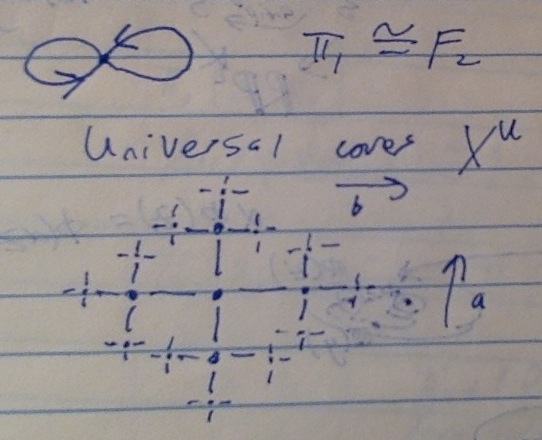 π₁ ≅ F₂
Universal cover Xᵘ
b
a